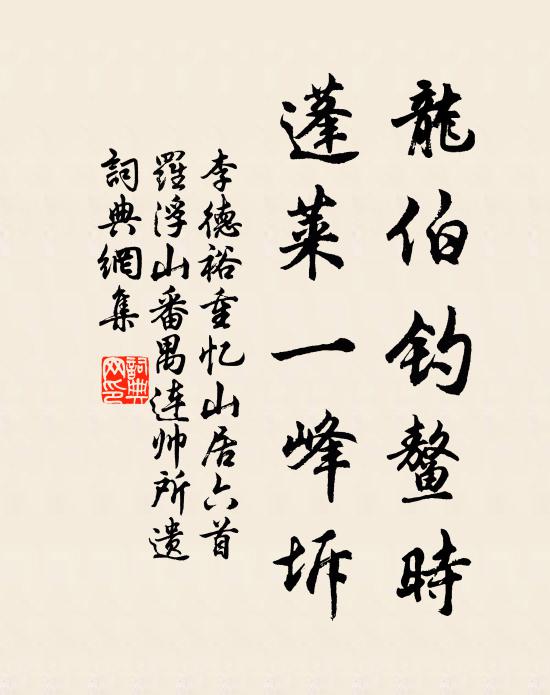 龍伯钓鳌時
蓬萊一峰坼
李德裕重忆山居六首
羅浮山番禺连帅所遗
詞典網集
詞典
网印